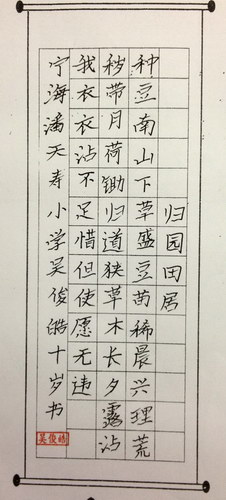 归园田居
种豆南山下草盛豆苗稀晨兴理荒
秽带月荷锄归道狭草木长夕露沾
我衣衣沾不足惜但使愿无违
宁海潘天寿小学吴俊皓十岁书
吴俊皓